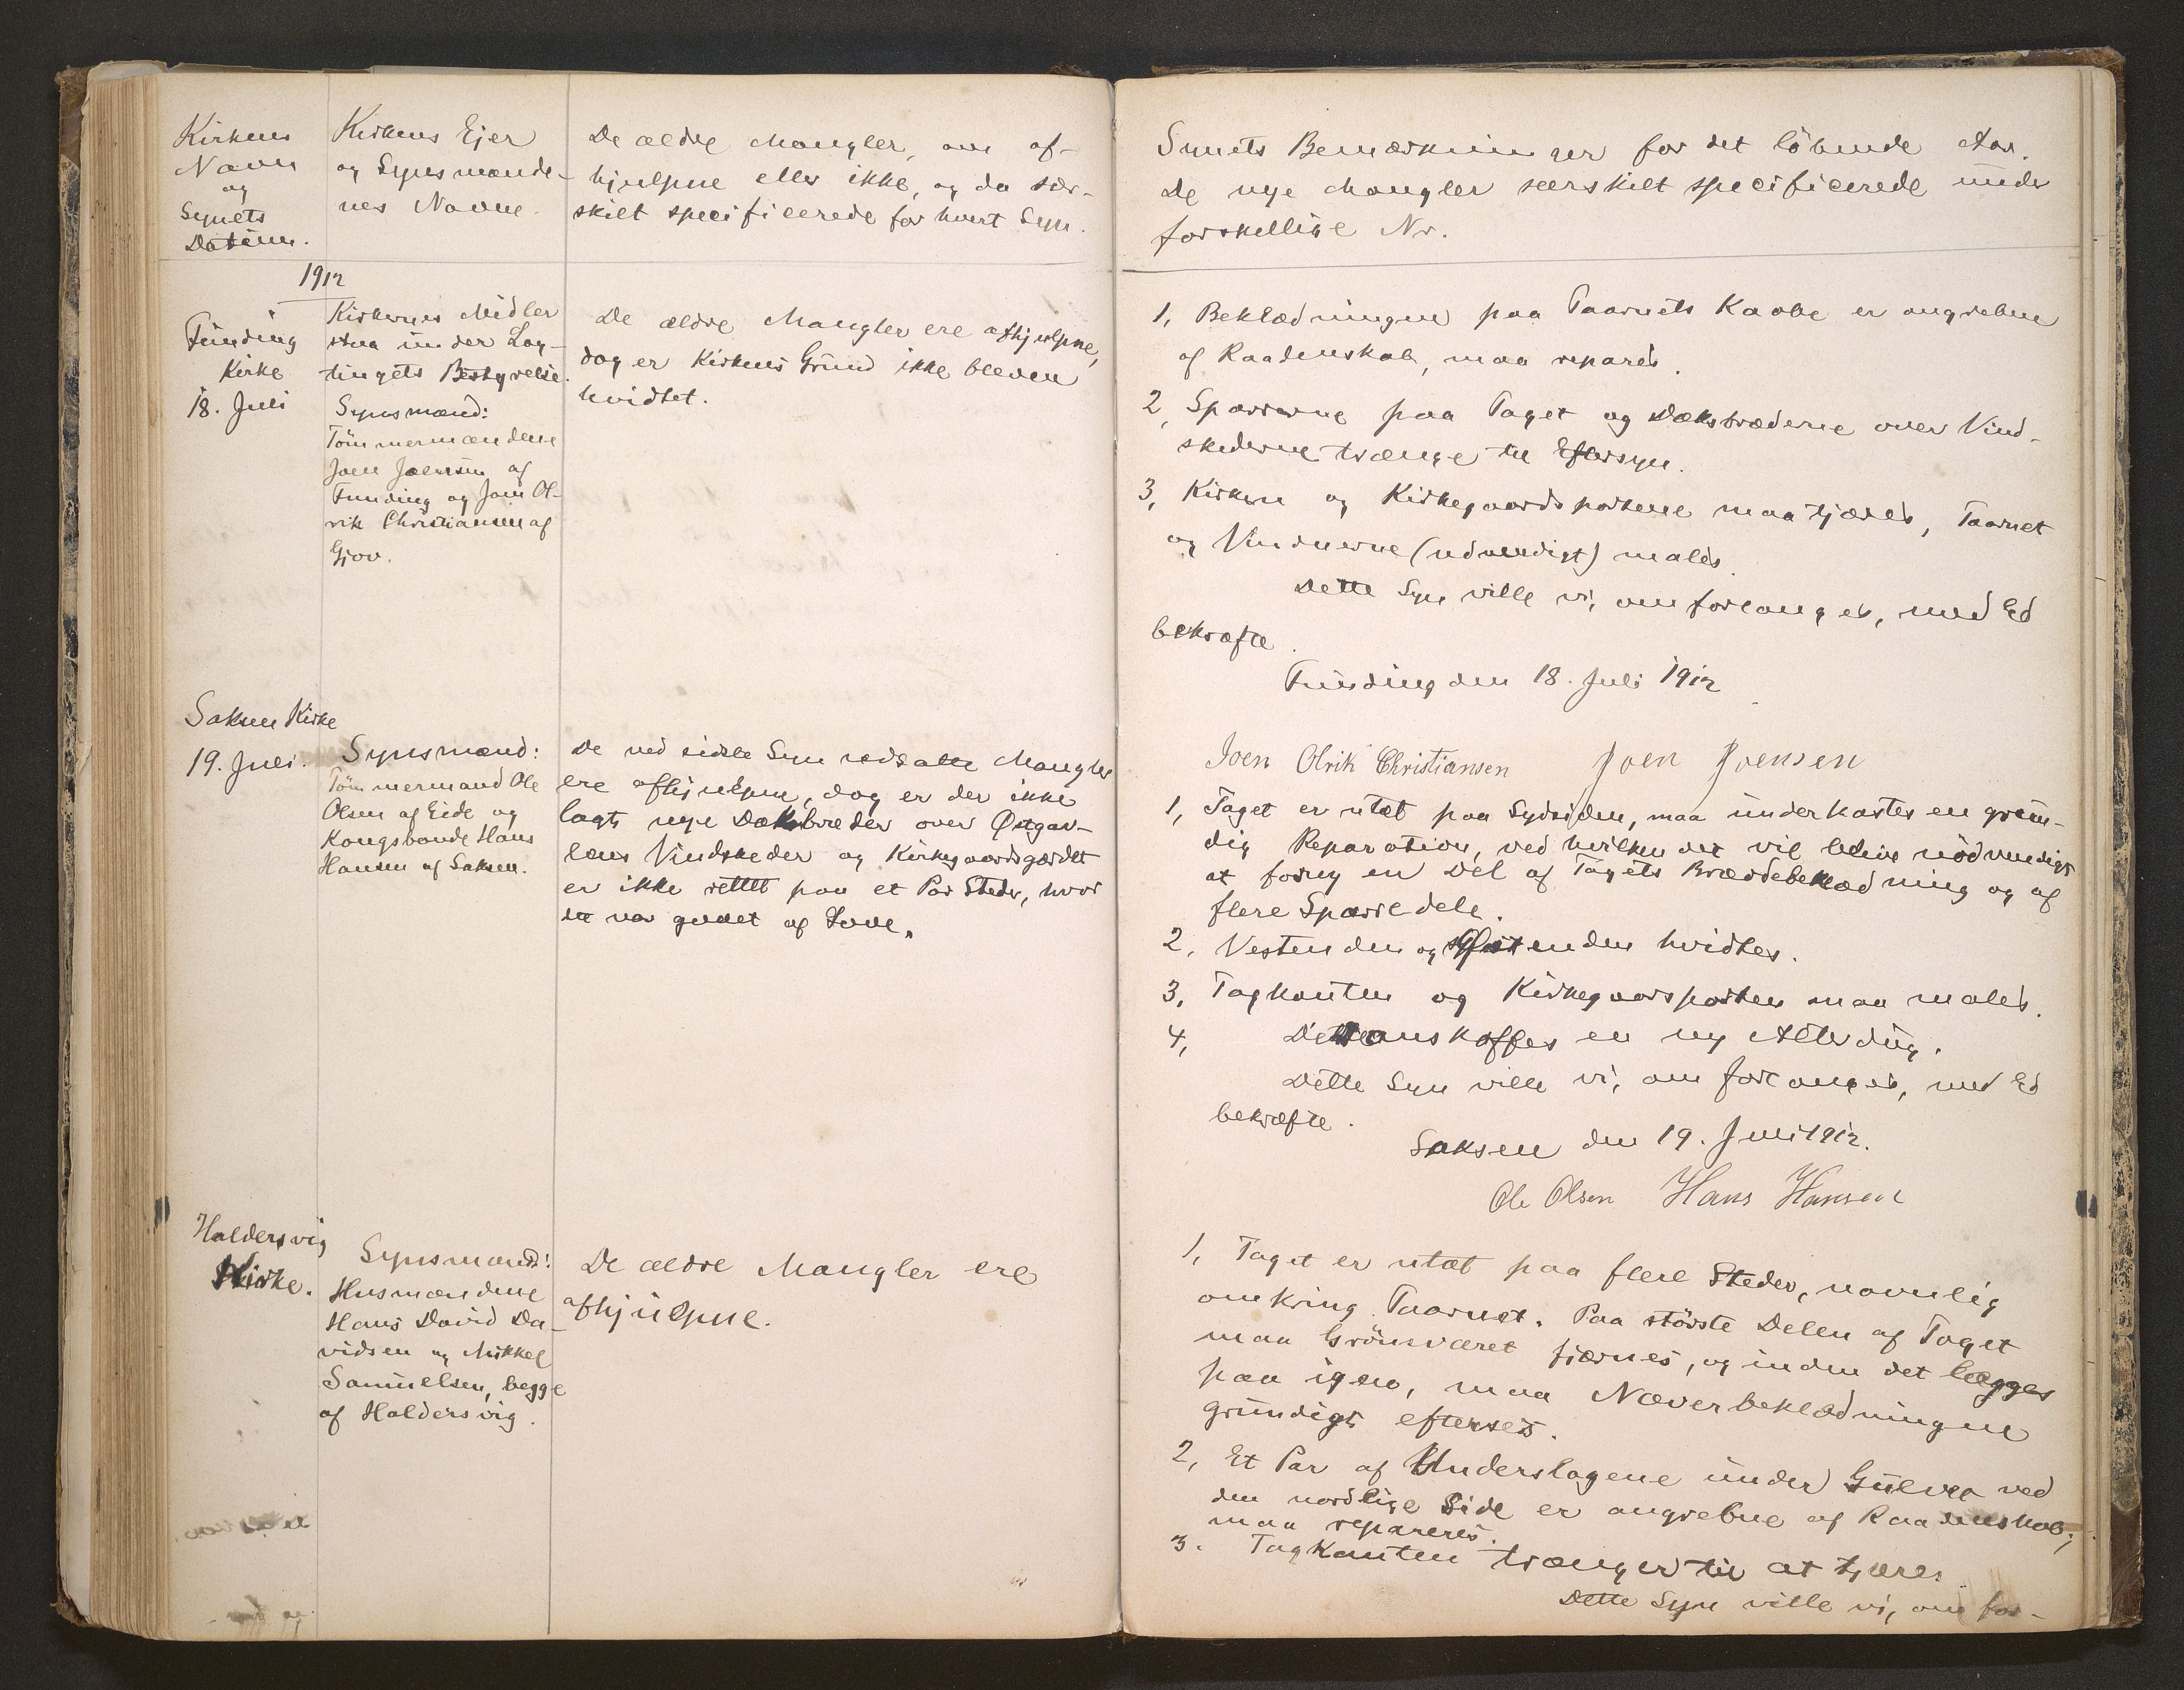 Kirkens
Navn
og
Synets
Datum.
Kirkens Ejer
og Synsmænde-
nes Navne.
De ældre Mangler, om af-
hjulpne eller ikke, og da sær-
skilt specificerede for hvert Syn.
1912
Funding
Kirke
18. Juli
Kirkernes Midler
staa under Lag-
tingets Bestyrelse.
Synsmænd:
Tömmermændene
Joen Joensen af
Funding og Joen Ol-
rik Christiansen af
Gjov.
De ældre Mangler ere afhjulpne,
dog er Kirkens Grund ikke bleven
hvidtet.
Saksen Kirke
19. Juli.
Synsmænd:
Tömmermand Ole
Olsen af Eide og
Kongsbonde Hans
Hansen af Saksen.
De ved sidste Syn udsatte Mangler
ere afhjulpne, dog er der ikke
lagt nye Dæksbreder over Østgav-
lens Vindskeder og Kirkegaardsgærdet
er ikke rettet paa et Par Steder, hvor
det var gledet af Lave.
Haldersvig
Kirke.
Synsmænd:
Husmændene
Hans David Da-
vidsen og Mikkel
Samuelsen, begge
af Haldersvig.
De ældre Mangler ere
afhjulpne.
Synets Bemærkninger for det löbende Aar.
De nye Mangler særskilt specificerede under
forskellige Nr.
1, Beklædningen paa Taarnets Kaabe er angreben
af Raadenskab, maa repareres.
2, Sparrerne paa Taget og Dæksbræderne over Vind-
skederne trænge til Eftersyn.
3, Kirken og Kirkegaardsportene maa tjæres, Taarnet
og Vinduerne (udvendigt) males.
Dette Syn ville vi, om forlanges, med Ed
bekræfte.
Funding den 18. Juli 1912
Joen Olrik Christiansen Joen Joensen
1, Taget er utæt paa Sydsiden, maa underkastes en grun-
dig Reparation, ved hvilken det vil blive nödvendigt
at forny en Del af Tagets Bræddebeklædning og af
flere Sparredele.
2. Vestenden og Østenden hvidtes.
3, Tagkanten og Kirkegaarsporten maa males.
4, Der anskaffes en ny Alterdug.
Dette Syn ville vi, om forlanges, med Ed
bekræfte.
Saksen den 19. Juli 1912.
Ole Olsen Hans Hansen
1, Taget er utæt paa flere Steder, navnlig
omkring Taarnet. Paa störste Delen af Taget
maa Grönsværet fjærnes, og inden det lægges
paa igen, maa Næverbeklædningen
grundigt efterses.
2, Et Par af Underslagene under Gulvet ved
den nordlige Side er angrebne af Raadenskab,
maa repareres.
3. Tagkanten trænger til at tjæres
Dette Syn ville vi, om for-